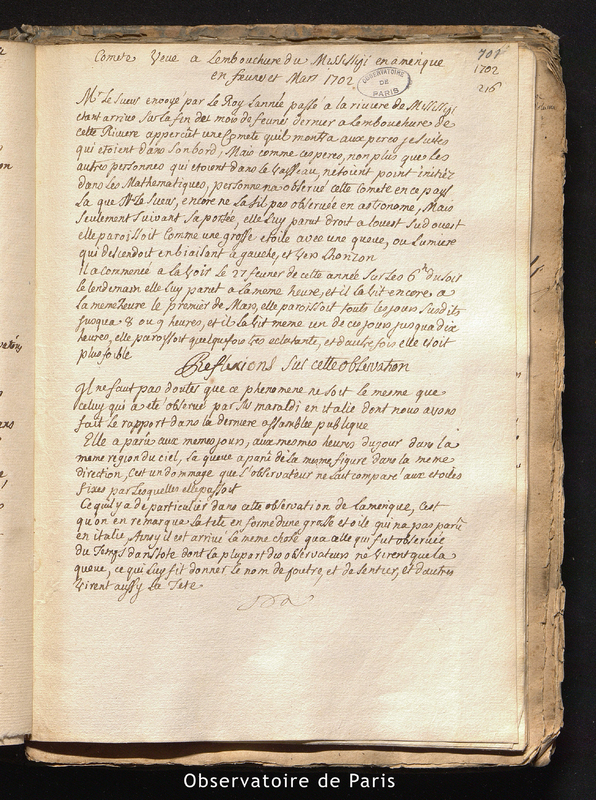 Comete Veue a Lembouchure du Mississipi en amerique
en feurier et Mars 1702
701
1702
216
OBSERVATOIRE
DE
PARIS
Mr. Le Sueur enuoyé par Le Roy Lannée passé à la riuiere de Mississipi
etant arriué sur la fin du mois de feurier dernier a Lembouchure de
cette Riuiere apperceut une Comete quil montra aux peres jesuites
qui etoient dans son bord, Mais comme ces peres, non plus que les
autres personnes qui etoient dans le Vaisseau, netoient point initiez
dans les Mathematiques, personne na obserué cette Comete en ce pays
La que Mr Le Sueur, encore ne la til pas obseruée en astronome, Mais
Seulement suiuant sa portée, elle Luy parut droit a louest sud ouest
elle paroissoit comme une grosse etoile auec une queue, ou Lumiere
qui descendoit en biaisant a gauche, et Vers Lhorizon
Il a commencé a la Voir le 27 feurier de cette année sur Les 6h du soir
le lendemain elle Luy parut a la meme heure, et il la Vit encore a
la meme heure le premier de Mars, elle paroissoit touts les jours susdits
jusqua 8 ou 9 heures, et il la Vit meme un de ces jours jusqua dix
heures, elle paroissoit quelquefois tres eclatante, et dautre fois elle etoit
plus foible
Reflexions Sur cette obseruation
Il ne faut pas douter que ce phenomene ne soit le mesme que
celuy qui a eté obserué par Mr maraldi en italie dont nous auons
fait le rapport dans la derniere assemblée publique
Elle a parue aux memes jours, aux mesmes heures du jour dans la
meme region du ciel, La queue a paru de la mesme figure dans la meme
direction, C'est un dommage que l'obseruateur ne lait comparé aux etoiles
fixes par Lesquelles elle passoit
Ce quil y a de particulier dans cette obseruation de Lamerique, C'est
qu'on en remarque La tete en forme dune grosse etoile qui na pas paru
en italie, Ainsy il est arriué la meme chose qua celle qui fut obseruée
du Temps d'aristote dont la plupart des obseruateurs ne Virent que la
queue, ce qui Luy fit donner le nom de poutre, et de sentier, et d'autres
Virent aussy La Tete
Observatoire de Paris